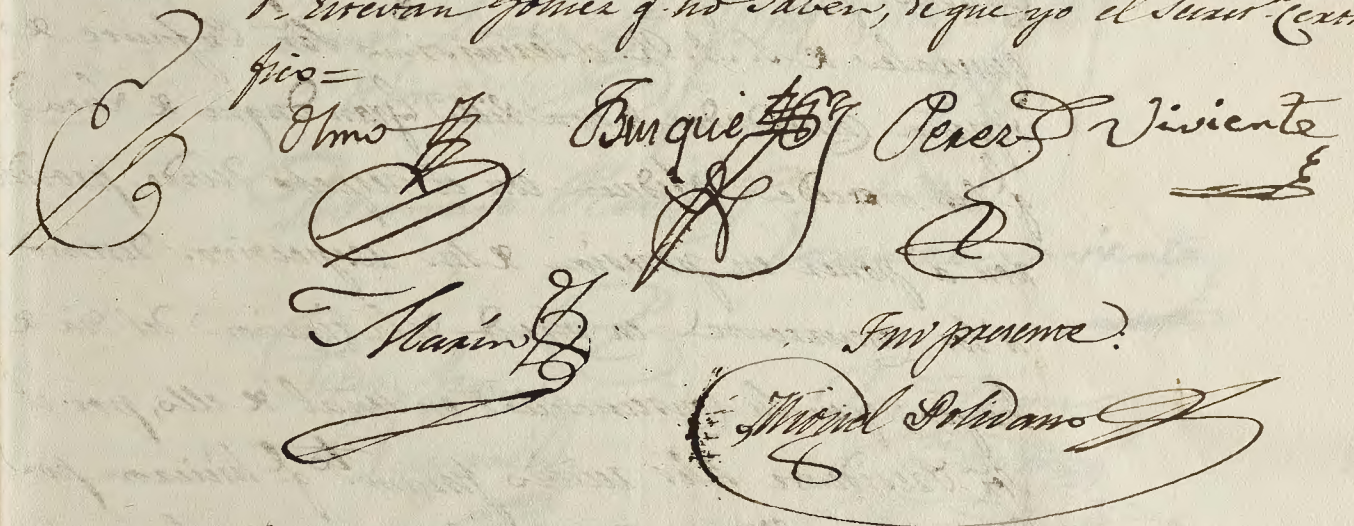 Dⁿ Estevan Gomez qᵉ no saben, de que yo el Secretº Certi
fico=
Olmo Burquie Perez Viviente
Marin
Fui presente.
Miguel Polidano